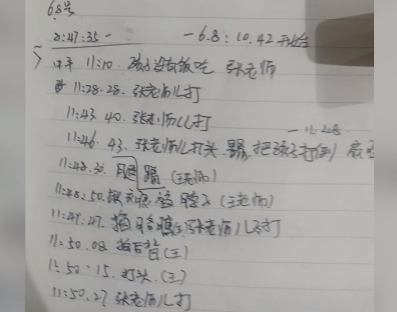 6.8号
8:47:35 - - 6.8:10.42开始
中午 11:10. 孩子没有饭吃 张老师
11:28.28. 张老师儿打
11:43 40. 张老师儿打
11:46. 43. 张老师儿打头 踢 把孩子打倒
11:48.30. 腿 踢 (王老师)
11:48:50. (王老师)
11:49.47. 张老师儿打
11:50.08 拍后背 (王)
11:50.15. 打头. (王)
11:50.27 张老师儿打